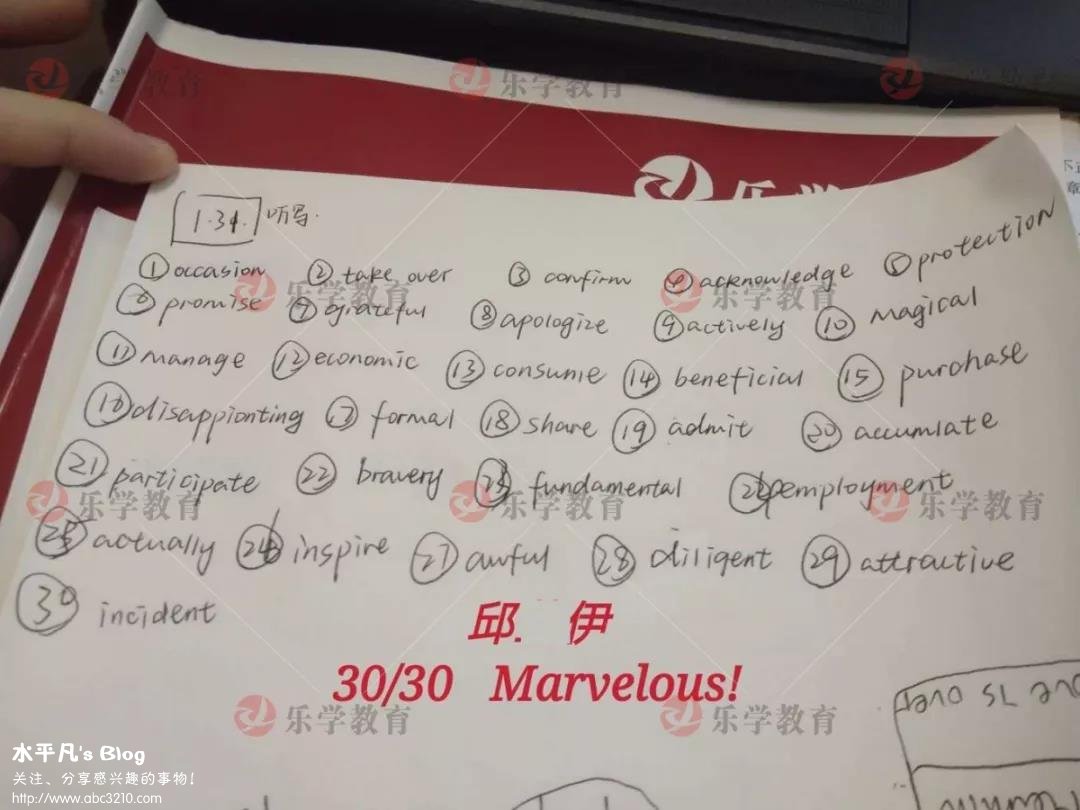 乐学教育 乐学教育 乐学教育
乐学
1.34. 听写.
① occasion ② take over ③ confirm ④ acknowledge ⑤ protection
⑥ promise ⑦ grateful ⑧ apologize ⑨ actively ⑩ magical
⑪ manage ⑫ economic ⑬ consume ⑭ beneficial ⑮ purchase
⑯ disappionting ⑰ formal ⑱ share ⑲ admit ⑳ accumlate
㉑ participate ㉒ bravery ㉓ fundamental ㉔ employment
㉕ actually ㉖ inspire ㉗ awful ㉘ diligent ㉙ attractive
㉚ incident
乐学教育 乐学教育
乐学教育 乐学教育 乐学教育
邱 伊
30/30 Marvelous!
乐学教育 乐学教育
水平凡's Blog
关注、分享感兴趣的事物!
http://www.abc3210.com
is over